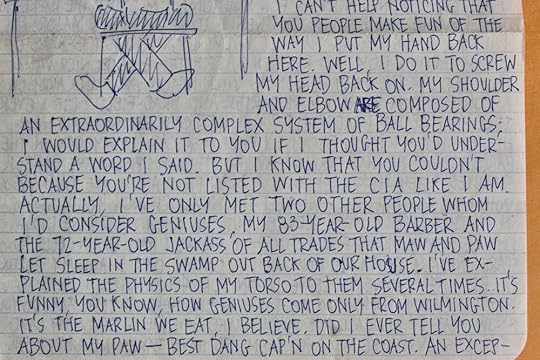 I CAN'T HELP NOTICING THAT
YOU PEOPLE MAKE FUN OF THE
WAY I PUT MY HAND BACK
HERE. WELL, I DO IT TO SCREW
MY HEAD BACK ON. MY SHOULDER
AND ELBOW ARE COMPOSED OF
AN EXTRAORDINARILY COMPLEX SYSTEM OF BALL BEARINGS;
I WOULD EXPLAIN IT TO YOU IF I THOUGHT YOU'D UNDER-
STAND A WORD I SAID. BUT I KNOW THAT YOU COULDN'T
BECAUSE YOU'RE NOT LISTED WITH THE CIA LIKE I AM.
ACTUALLY, I'VE ONLY MET TWO OTHER PEOPLE WHOM
I'D CONSIDER GENIUSES, MY 83-YEAR-OLD BARBER AND
THE 72-YEAR-OLD JACKASS OF ALL TRADES THAT MAW AND PAW
LET SLEEP IN THE SWAMP OUT BACK OF OUR HOUSE. I'VE EX-
PLAINED THE PHYSICS OF MY TORSO TO THEM SEVERAL TIMES. IT'S
FUNNY, YOU KNOW, HOW GENIUSES COME ONLY FROM WILMINGTON.
IT'S THE MARLIN WE EAT, I BELIEVE. DID I EVER TELL YOU
ABOUT MY PAW — BEST DANG CAP'N ON THE COAST. AN EXCEP-